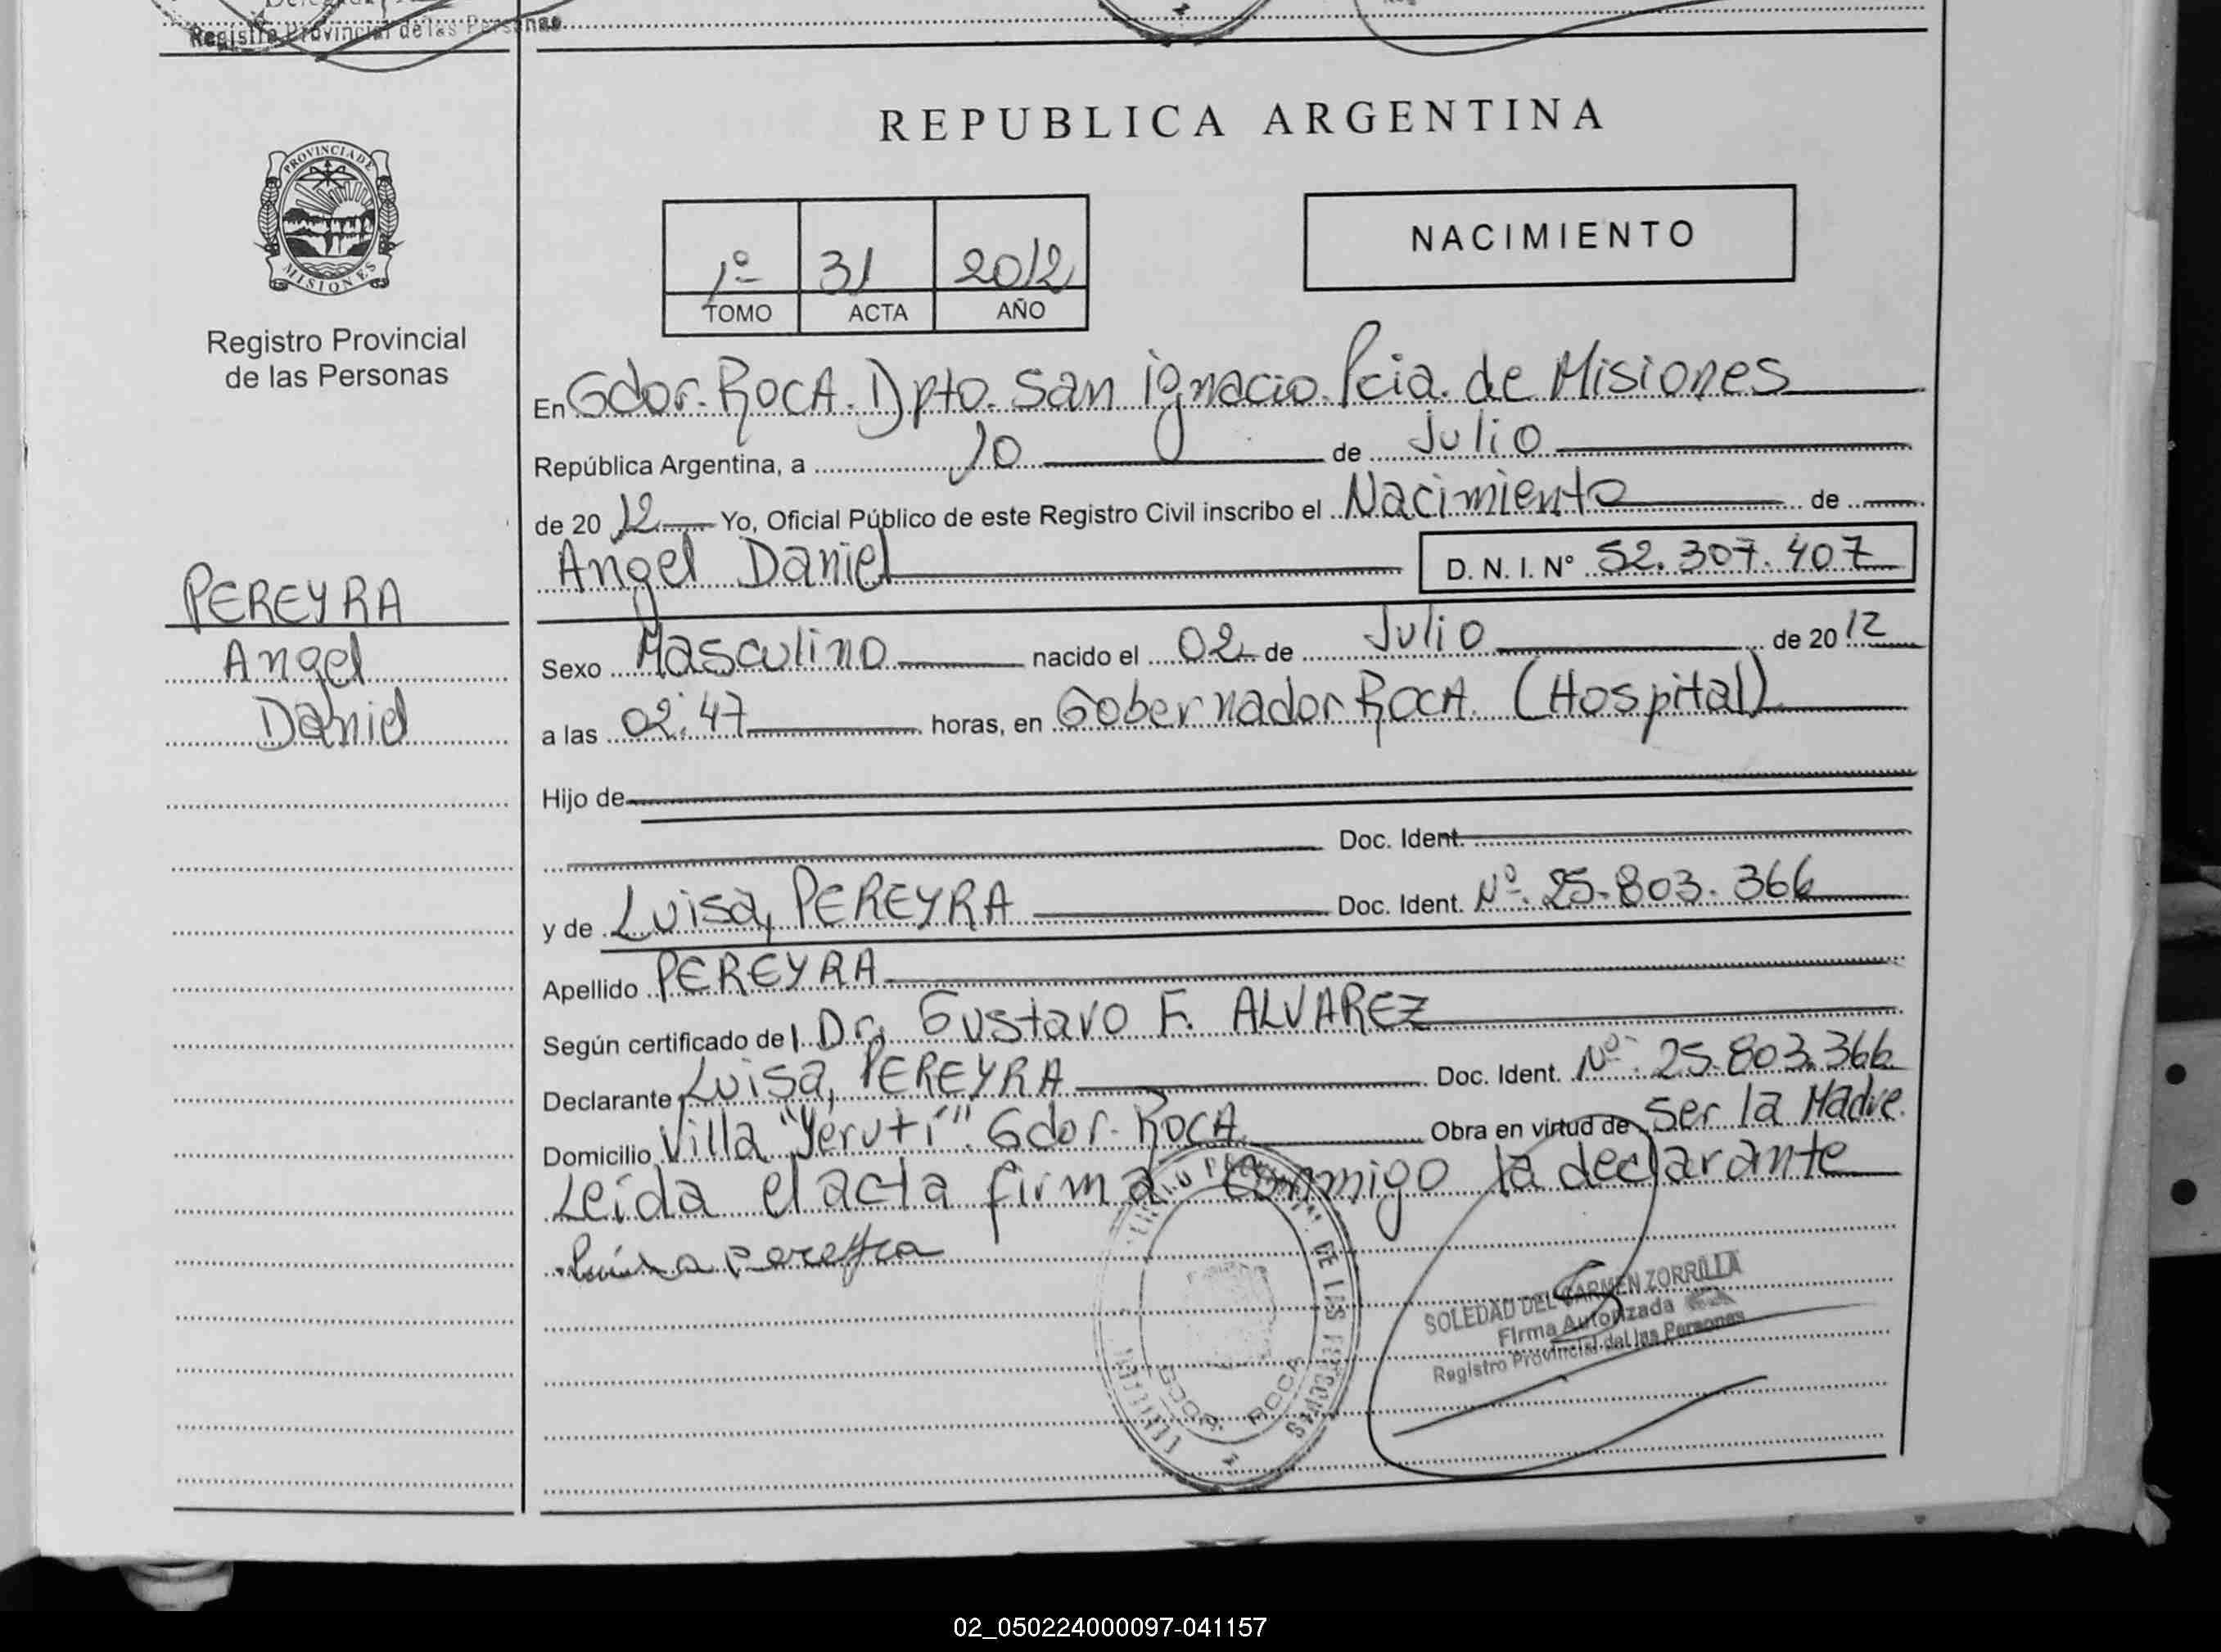 Registro Provincial de las Personas
REPUBLICA ARGENTINA
PROVINCIA DE
MISIONES
Registro Provincial
de las Personas
1º 31 2012
TOMO ACTA AÑO
NACIMIENTO
En Gdor. ROCA. Dpto. San ignacio. Pcia. de Misiones
República Argentina, a 10 de Julio
de 2012 Yo, Oficial Público de este Registro Civil inscribo el Nacimiento de
Angel Daniel D. N. I. N° 52.307.407
PEREYRA
Angel
Daniel
Sexo Masculino nacido el 02 de Julio de 2012
a las 02:47 horas, en Gobernador ROCA. (Hospital)
Hijo de
Doc. Ident.
y de Luisa, PEREYRA Doc. Ident. Nº. 25.803.366
Apellido PEREYRA
Según certificado del Dr. Gustavo F. ALVAREZ
Declarante Luisa, PEREYRA Doc. Ident. Nº. 25.803.366
Domicilio Villa "Yerutí". Gdor. ROCA. Obra en virtud de Ser la Madre.
Leída el acta firma conmigo la declarante
Luisa Pereyra
DE LAS PERSONAS
GDOR. ROCA
SOLEDAD DEL CARMEN ZORRILLA
Firma Autorizada
Registro Provincial de las Personas
02_050224000097-041157